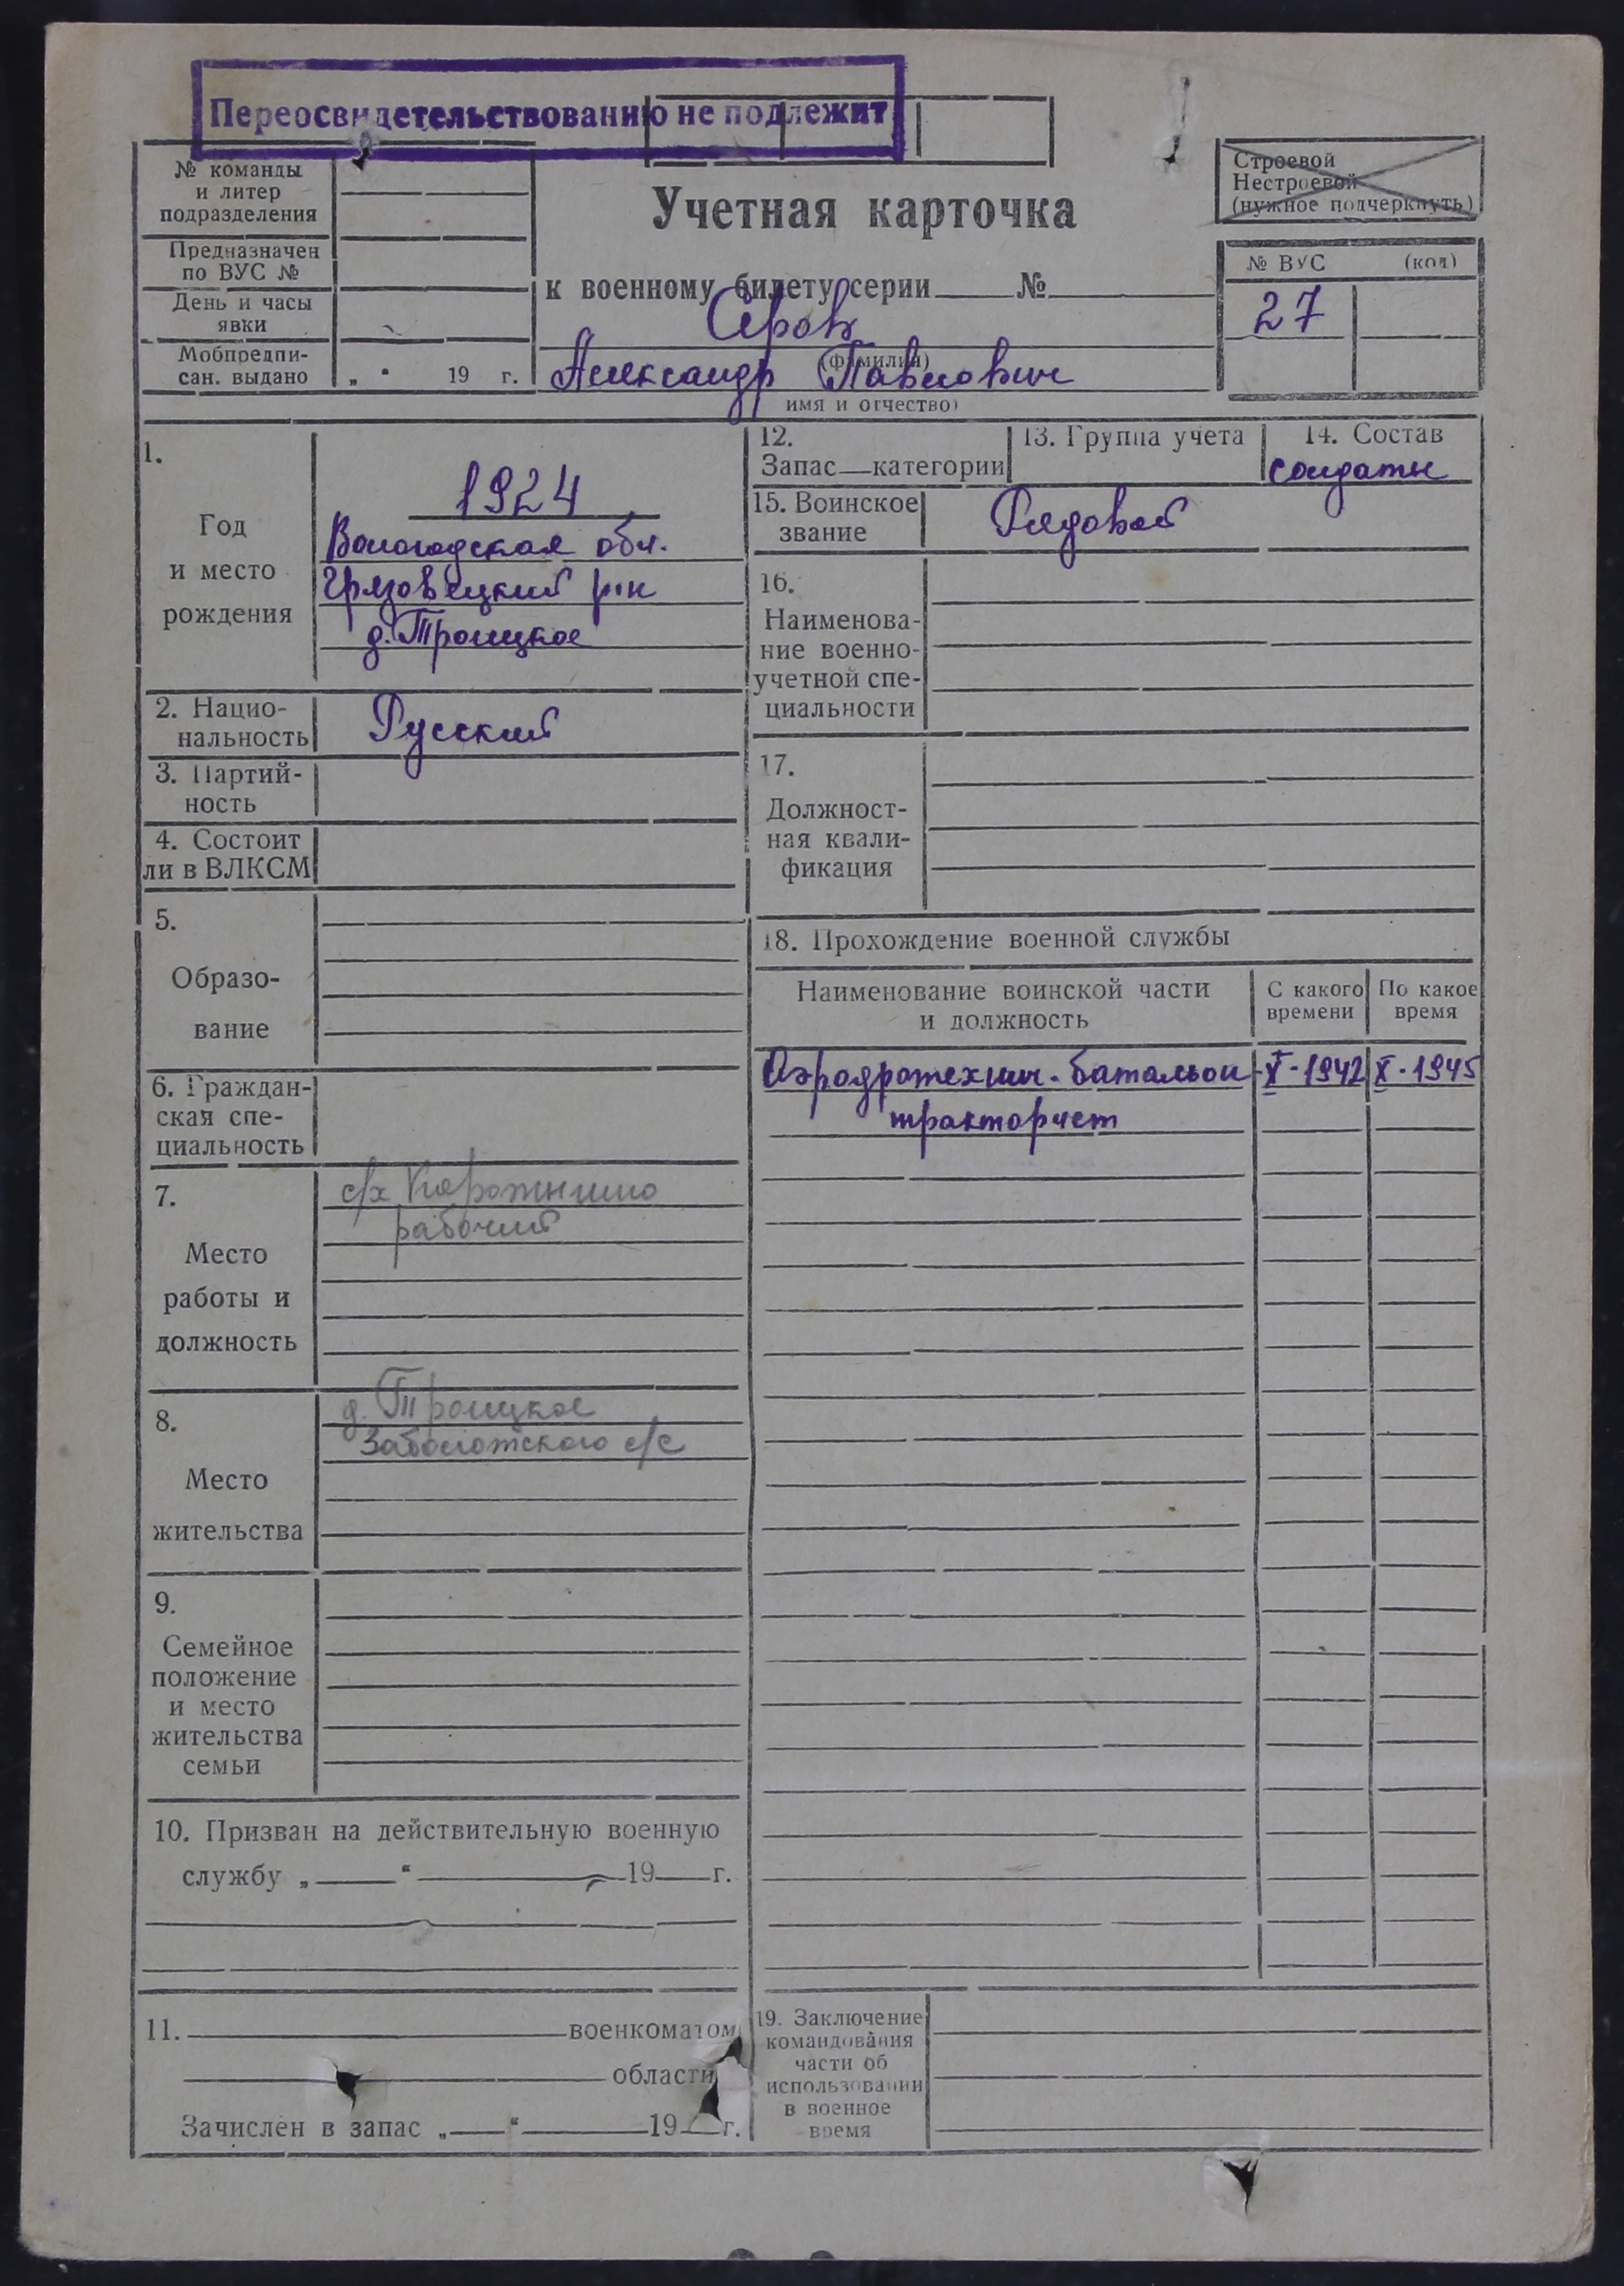 Переосвидетельствованию не подлежит
№ команды
и литер
подразделения
Предназначен
по ВУС №
День и часы
явки
Мобпредпи-
сан. выдано „ “ 19 г.
Учетная карточка
к военному билету серии № 
Серов
(фамилия)
Александр Павлович
имя и отчество)
Строевой
Нестроевой
(нужное подчеркнуть)
№ ВУС (код)
27
1.
Год
и место
рождения
1924
Вологодская обл.
Грязовецкий р-н
д. Троицкое
2. Нацио-
нальность
Русский
3. Партий-
ность
4. Состоит
ли в ВЛКСМ
5.
Образо-
вание
6. Граждан-
ская спе-
циальность
7.
Место
работы и
должность
с/х
рабочий
8.
Место
жительства
д. Троицкое
Заболотского с/с
9.
Семейное
положение
и место
жительства
семьи
10. Призван на действительную военную
службу „ “ 19 г.
11. военкоматом
области
Зачислен в запас „ “ 19 г.
12.
Запас—категории
13. Группа учета
14. Состав
солдаты
15. Воинское
звание
Рядовой
16.
Наименова-
ние военно-
учетной спе-
циальности
17.
Должност-
ная квали-
фикация
18. Прохождение военной службы
Наименование воинской части
и должность
С какого
времени
По какое
время
Аэродротехнич. батальон X-1942 X-1945
тракторист
19. Заключение
командования
части об
использовании
в военное
время